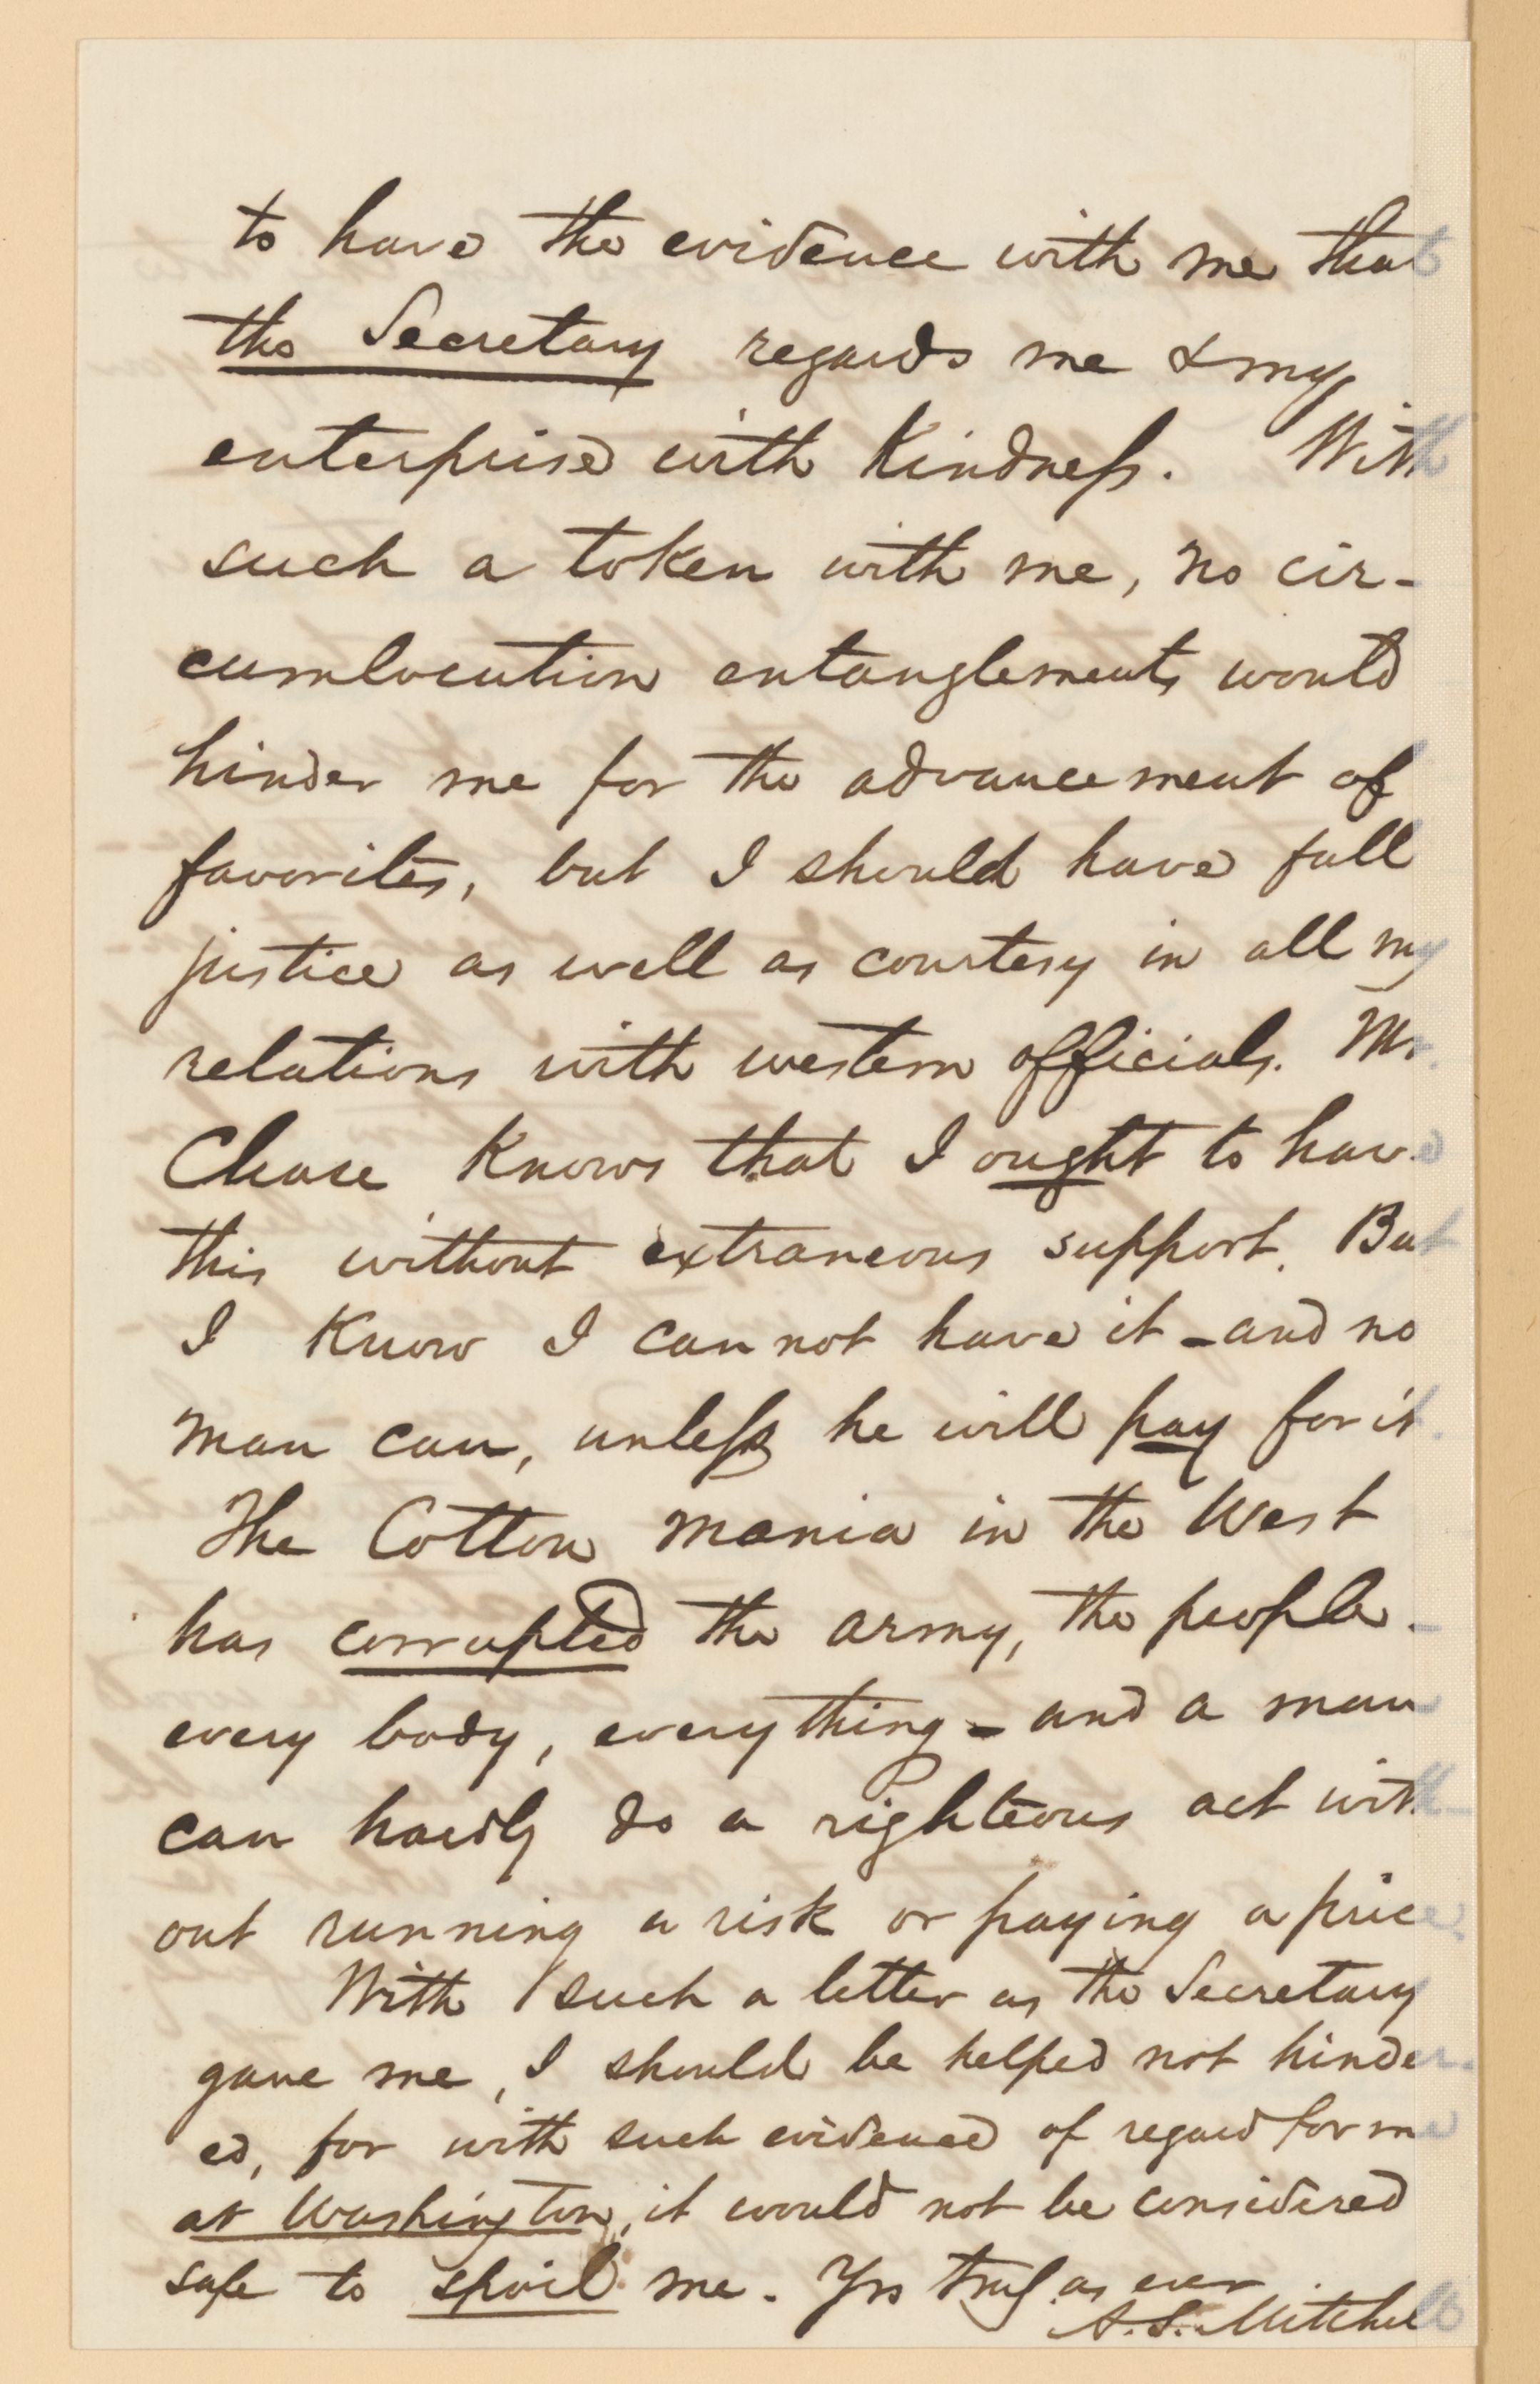 to have the evidence with me that
the Secretary regards me & my
enterprise with Kindness. With
such a token with me, no cir-
cumlocution entanglements would
hinder me for the advancement of
favorites, but I should have full
justice as well as courtesy in all my
relations with western officials. Mr.
Chase Knows that I ought to have
this without extraneous support. But
I Know I can not have it - and no
man can, unless he will pay for it.
The Cotton mania in the West
has corrupted the army, the people -
every body, every thing - and a man
can hardly do a righteous act with-
out running a risk or paying a price.
With such a letter as the Secretary
gave me, I should be helped not hinder-
ed, for with such evidence of regard for me
at Washington, it would not be considered
safe to spoil me. Yrs truly as ever
A. S. Mitchell